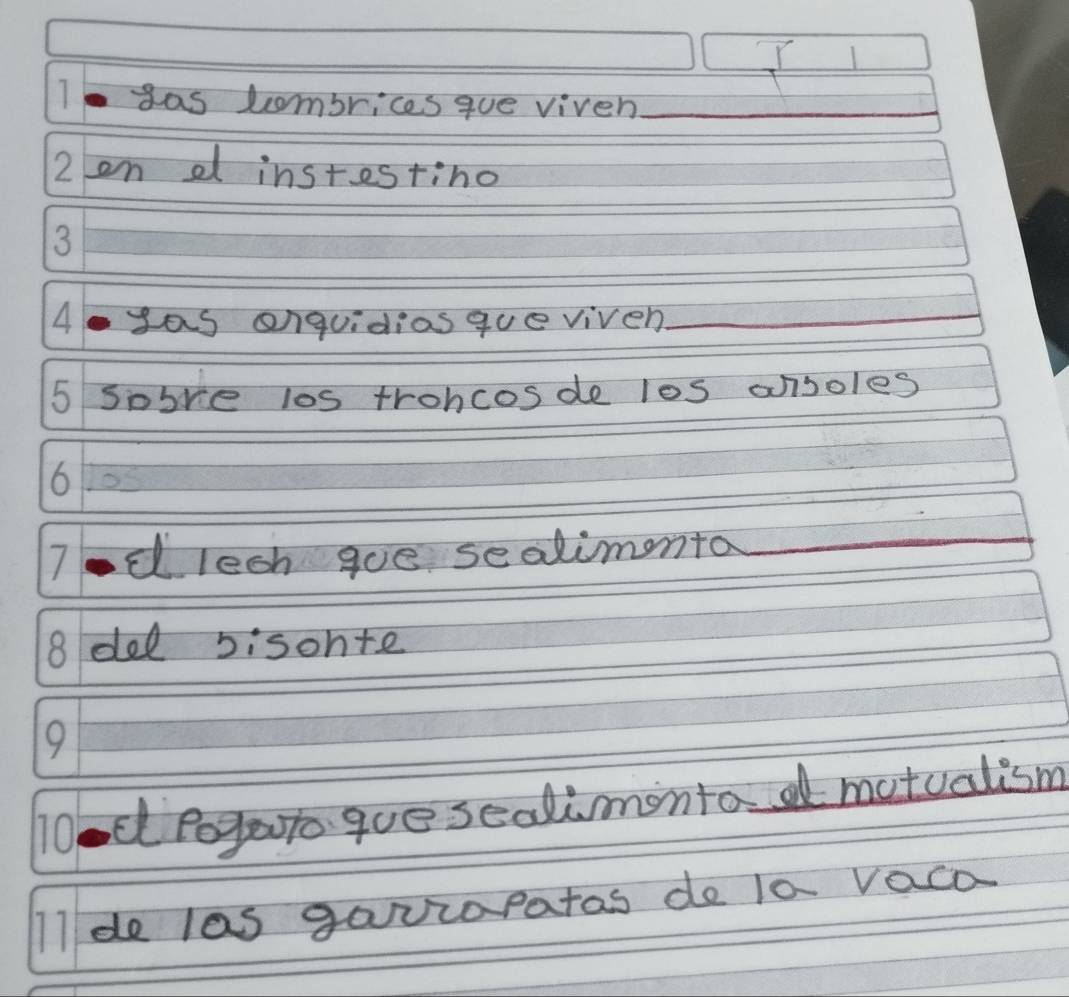 1 Las lombrices que viven
2 en el instestino
3
4 Las orquidias que viven
5 sobre los troncos de los arboles
6 los
7 El leon que se alimenta
8 del bisonte
9
10 el Pogaro que se alimenta el mutualism
11 de las garrapatas de la vaca